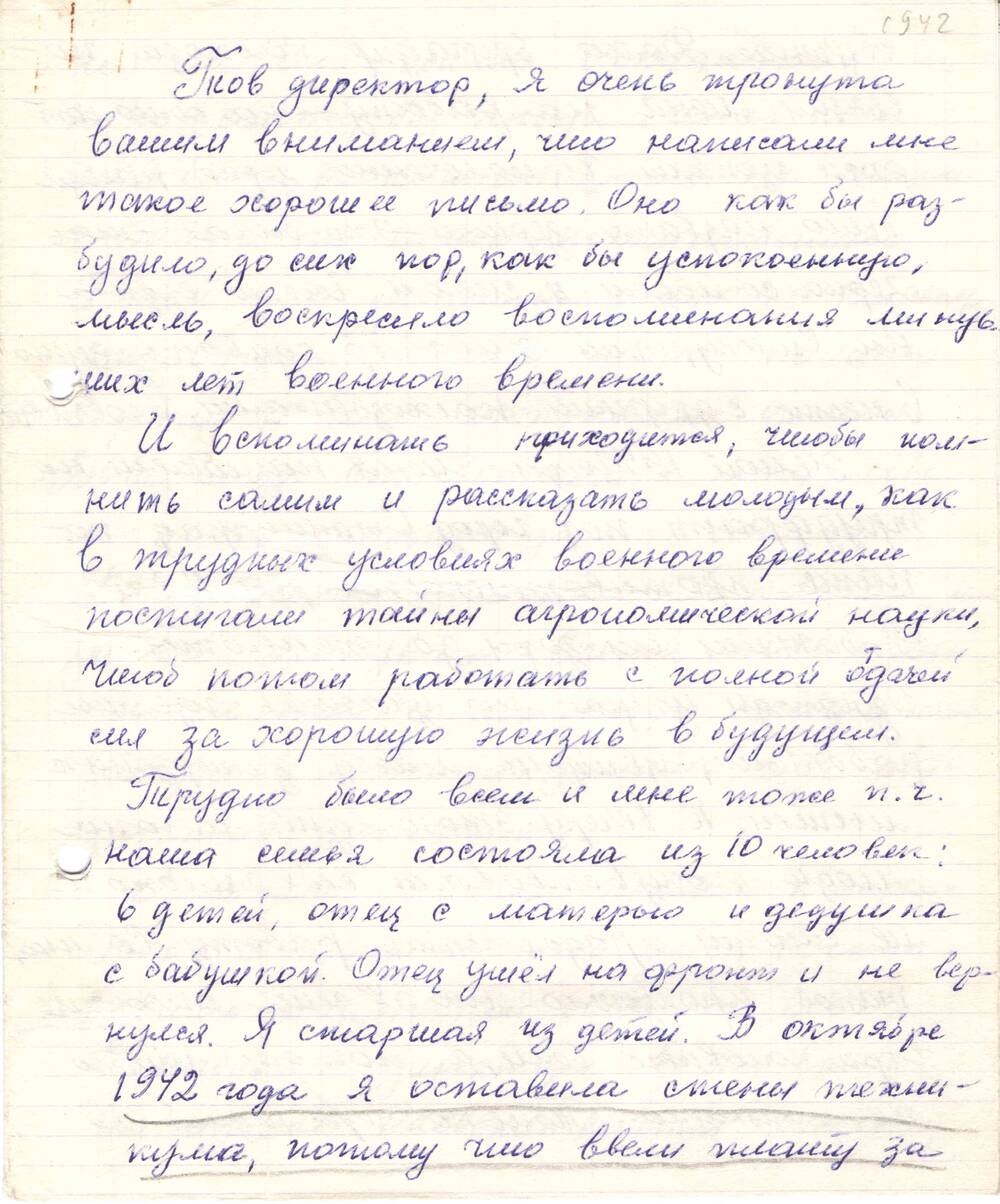 1942
Тов директор, я очень тронута
вашим вниманием, что написали мне
такое хорошее письмо. Оно как бы раз-
будило, до сих пор, как бы успокоенную,
мысль, воскресило воспоминания минув-
ших лет военного времени.
И вспоминать приходится, чтобы пом-
нить самим и рассказать молодым, как
в трудных условиях военного времени
постигали тайны агрономической науки,
чтоб потом работать с полной отдачей
сил за хорошую жизнь в будущем.
Трудно было всем и мне тоже п.ч.
наша семья состояла из 10 человек:
6 детей, отец с матерью и дедушка
с бабушкой. Отец ушёл на фронт и не вер-
нулся. Я старшая из детей. В октябре
1942 года я оставила стены техни-
кума, потому что ввели плату за